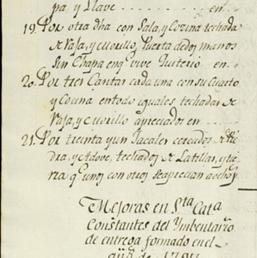 pa y Llave . . . . . . . . . . en . .
19. Por otra dha con Sala, y Cozina techada
de Vaja, y cuvillo, Puerta de dos manos
sin Chapa en q.e vive Juterio en . .
20. Por tres Cantar cada una con su Cuarto
y Cocina en todo yguales, techadas de
Vaja, y Cuvillo apreciados en . . . .
21. Por treinta y un Jacales cercados de Pie
dra, y Adove, techados de Latilla, y tie
rra q.e unos con otros se aprecian a ocho p.s
Mejoras en S.ta Cata
Constantes del Ymbentario
de entrega formado en el
año de